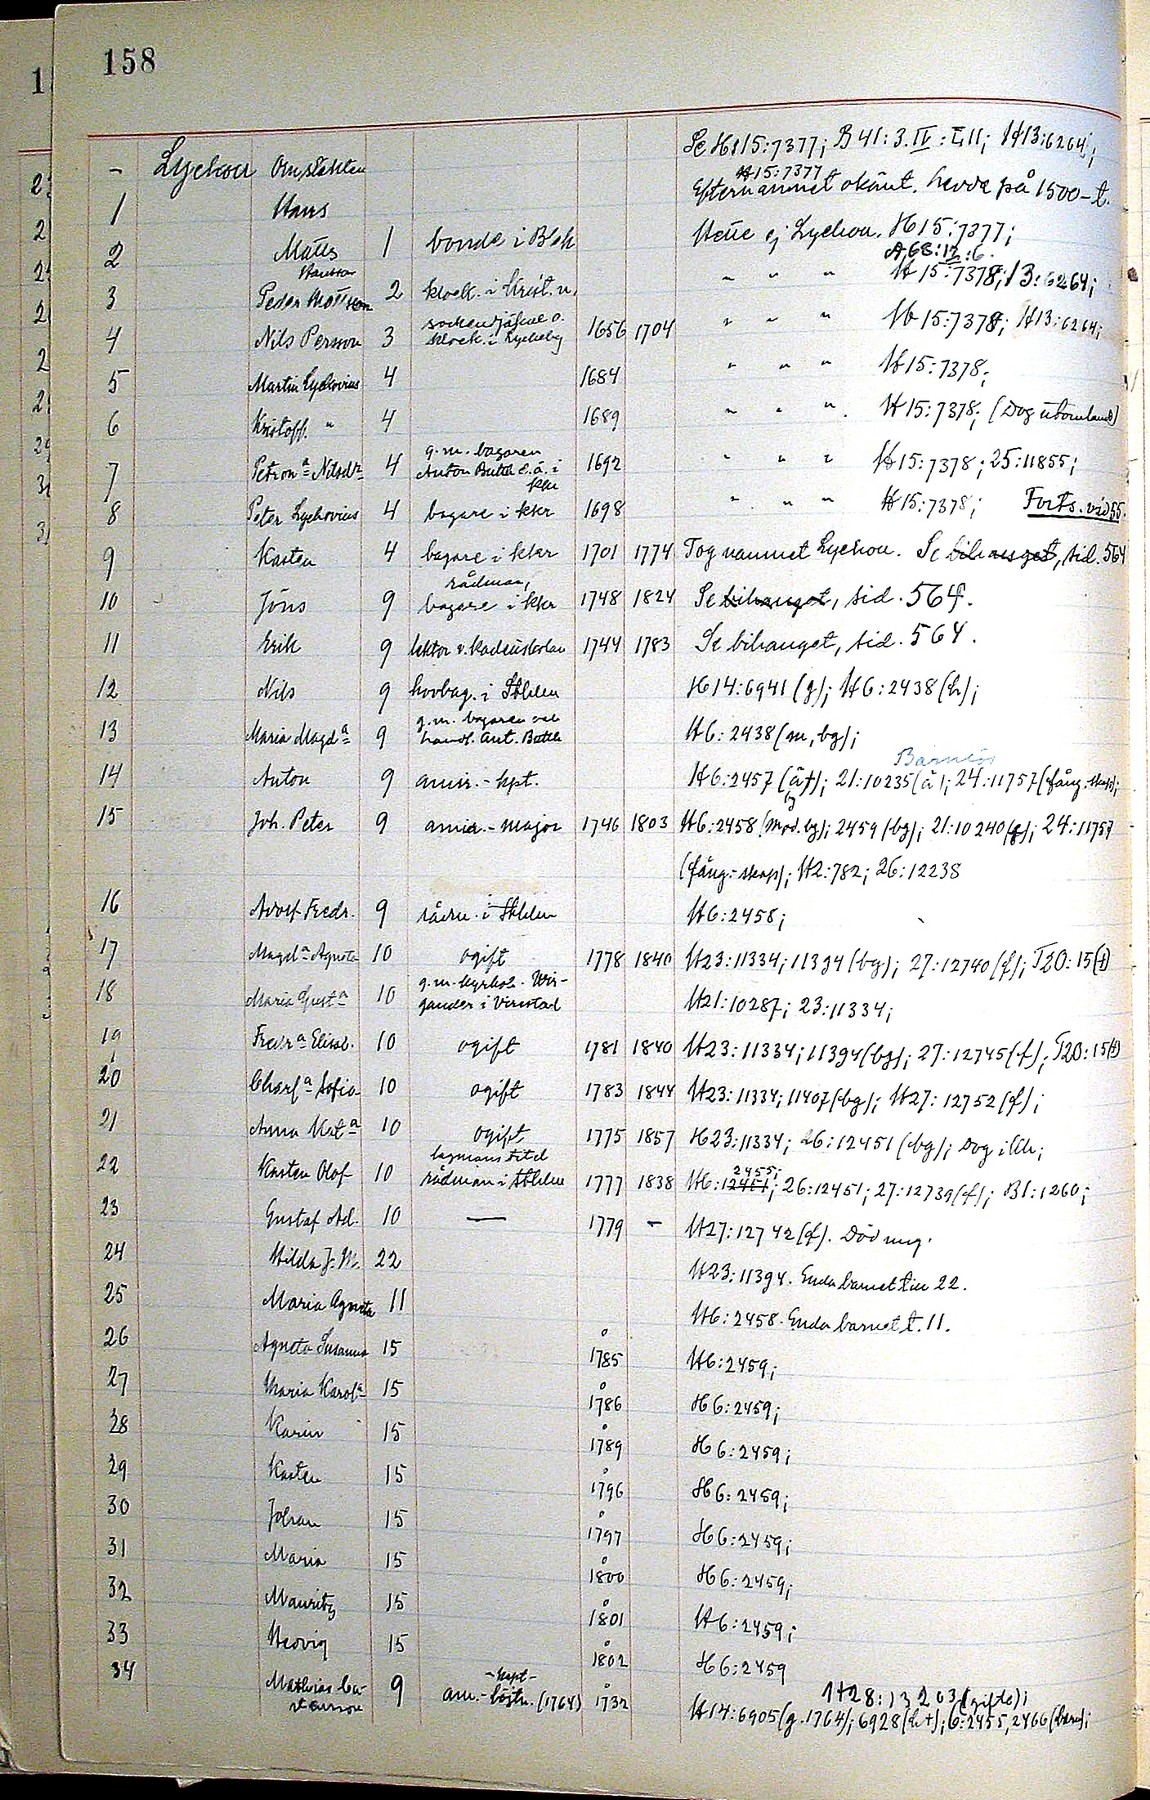 158
- Lychou Om släkten Se H15:7377; B 41: 3. IV: I, II; H13:6264;
H15:7377
1 Hans Efternamnet okänt. Levde på 1500-t.
2 Matts Hansson 1 bonde i Blek Hette ej Lychou. H15:7377;
A,68:12:6.
3 Peder Mattsson 2 klock. i " " " H15:7378; 13:6264;
4 Nils Persson 3 klock. i Lyckeby 1656 1704 " " " H15:7378; H13:6264;
5 Martin Lychovius 4 1684 " " " H15:7378;
6 Kristoff. " 4 1689 " " " H15:7378; (Dog utomlands)
7 Petrona Nilsdr 4 g.m. bagaren Anton i kkr 1692 " " " H15:7378; 25:11855;
8 Peter Lychovius 4 bagare i kkr 1698 " " " H15:7378; Forts. vid 55.
9 Karsten 4 bagare i kkr 1701 1774 Tog namnet Lychou. Se bihanget, sid. 564
10 Jöns 9 rådman, bagare i kkr 1748 1824 Se bihanget, sid. 564.
11 Erik 9 lektor v. kadettskolan 1744 1783 Se bihanget, sid. 564.
12 Nils 9 hovbag. i Sthlm H14:6941 (g); H6:2438 (h);
13 Maria Magda 9 g.m. bagaren Ant. H6:2438 (m, bg);
Barnlös
14 Anton 9 amir.-kpt. H6:2457 (å†); 21:10235 (å); 24:11757 (fång.-skap);
15 Joh. Peter 9 amir.-major 1746 1803 H6:2458 (mod. bg); 2459 (bg); 21:10240 (g); 24:11757
(fång.-skap); H2:782; 26:12238
16 Adolf Fredr. 9 i Sthlm H6:2458;
17 Magda Agneta 10 ogift 1778 1840 H23:11334; 11394 (bg); 27:12740 (f); T20:15 (†)
18 Maria Gusta 10 g.m. kyrkoh. Wirgander i Virestad H21:10287; 23:11334;
19 Fredra Elisab. 10 ogift 1781 1840 H23:11334; 11394 (bg); 27:12745 (f); T20:15 (†)
20 Charla Sofia 10 ogift 1783 1844 H23:11334; 11407 (bg); H27:12752 (f);
21 Anna Kata 10 ogift 1775 1857 H23:11334; 26:12451 (bg); Dog i kkr;
22 Karsten Olof 10 lagmans titel rådman i Sthlm 1777 1838 H6:12451 2455; 26:12451; 27:12739 (f); B1:1260;
23 Gustaf Ad. 10 — 1779 - H27:12742 (f). Död ung.
24 Hilda J. M. 22 H23:11394. Enda barnet till 22.
25 Maria Agneta 11 H6:2458. Enda barnet t. 11.
26 Agneta Susanna 15 1785 H6:2459;
27 Maria Karola 15 1786 H6:2459;
28 Karin 15 1789 H6:2459;
29 Karsten 15 1796 H6:2459;
30 Johan 15 1797 H6:2459;
31 Maria 15 1800 H6:2459;
32 Mauritz 15 1801 H6:2459;
33 Hedvig 15 1802 H6:2459
34 Mathias 9 -kapt- am.-löjtn. (1764) 1732 H28:13203 (gifte);
H14:6905 (g. 1764); 6928 (h+); 6:2455, 2466 (barn);